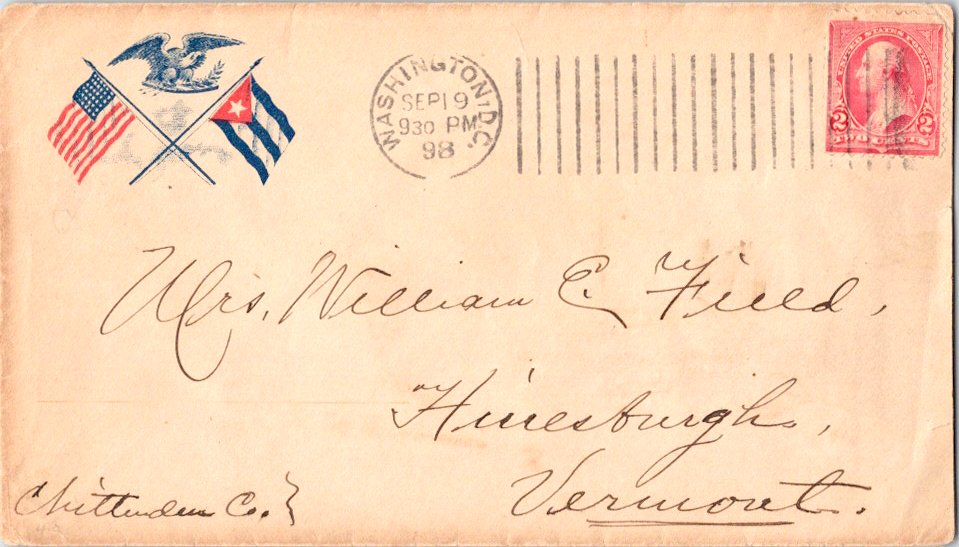 WASHINGTON, D.C.
SEP 19
930 PM
98
UNITED STATES POSTAGE
2 2
TWO CENTS
Mrs. William E. Field,
Hinesburgh,
Vermont.
Chittenden Co.